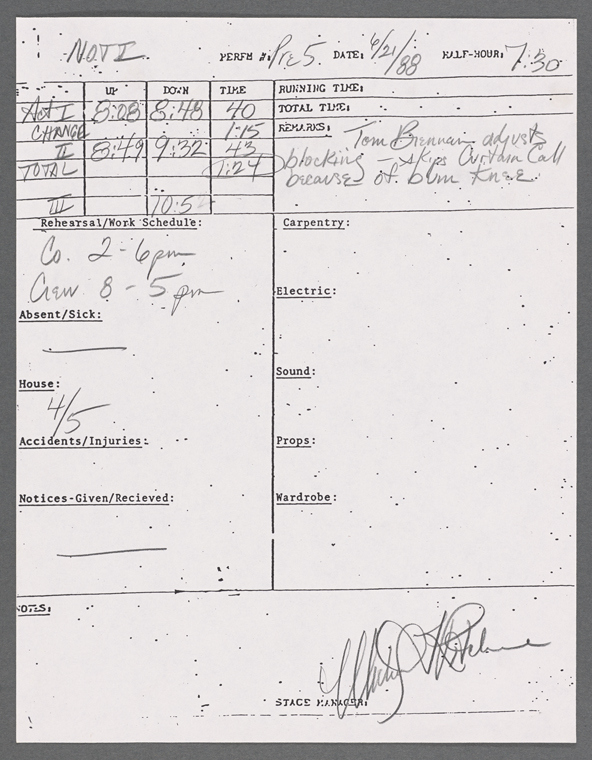 NOT I PERFM #: Pre 5. DATE: 6/21/88 HALF-HOUR: 7:30
UP DOWN TIME RUNNING TIME:
Act I 8:08 8:48 40 TOTAL TIME:
CHANGE 1:15 REMARKS: Tom Brennan adjusts
II 8:49 9:32 43 blocking - skips Curtain Call
TOTAL 1:24 because of bum knee.
III 10:5
Rehearsal/Work Schedule: Carpentry:
Co. 2-6pm
Crew 8-5pm
Electric:
Absent/Sick:
Sound:
House:
4/5
Accidents/Injuries: Props:
Notices-Given/Recieved: Wardrobe:
NOTES:
STAGE MANAGER: